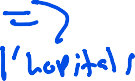 =>
l'hopitals